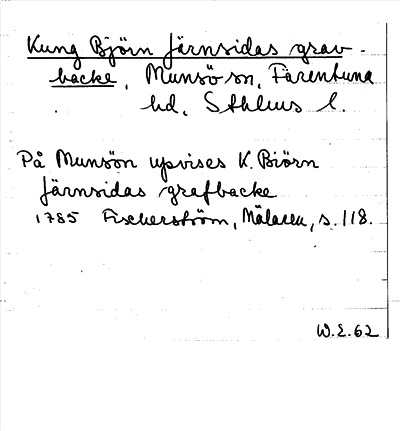 Kung Björn Järnsidas grav-
backe, Munsö sn, Färentuna
hd, Sthlms l.
På Munsön upvises K. Biörn
Järnsidas grafbacke
1785 Fischerström, Mälaren, s. 118.
W.E. 62